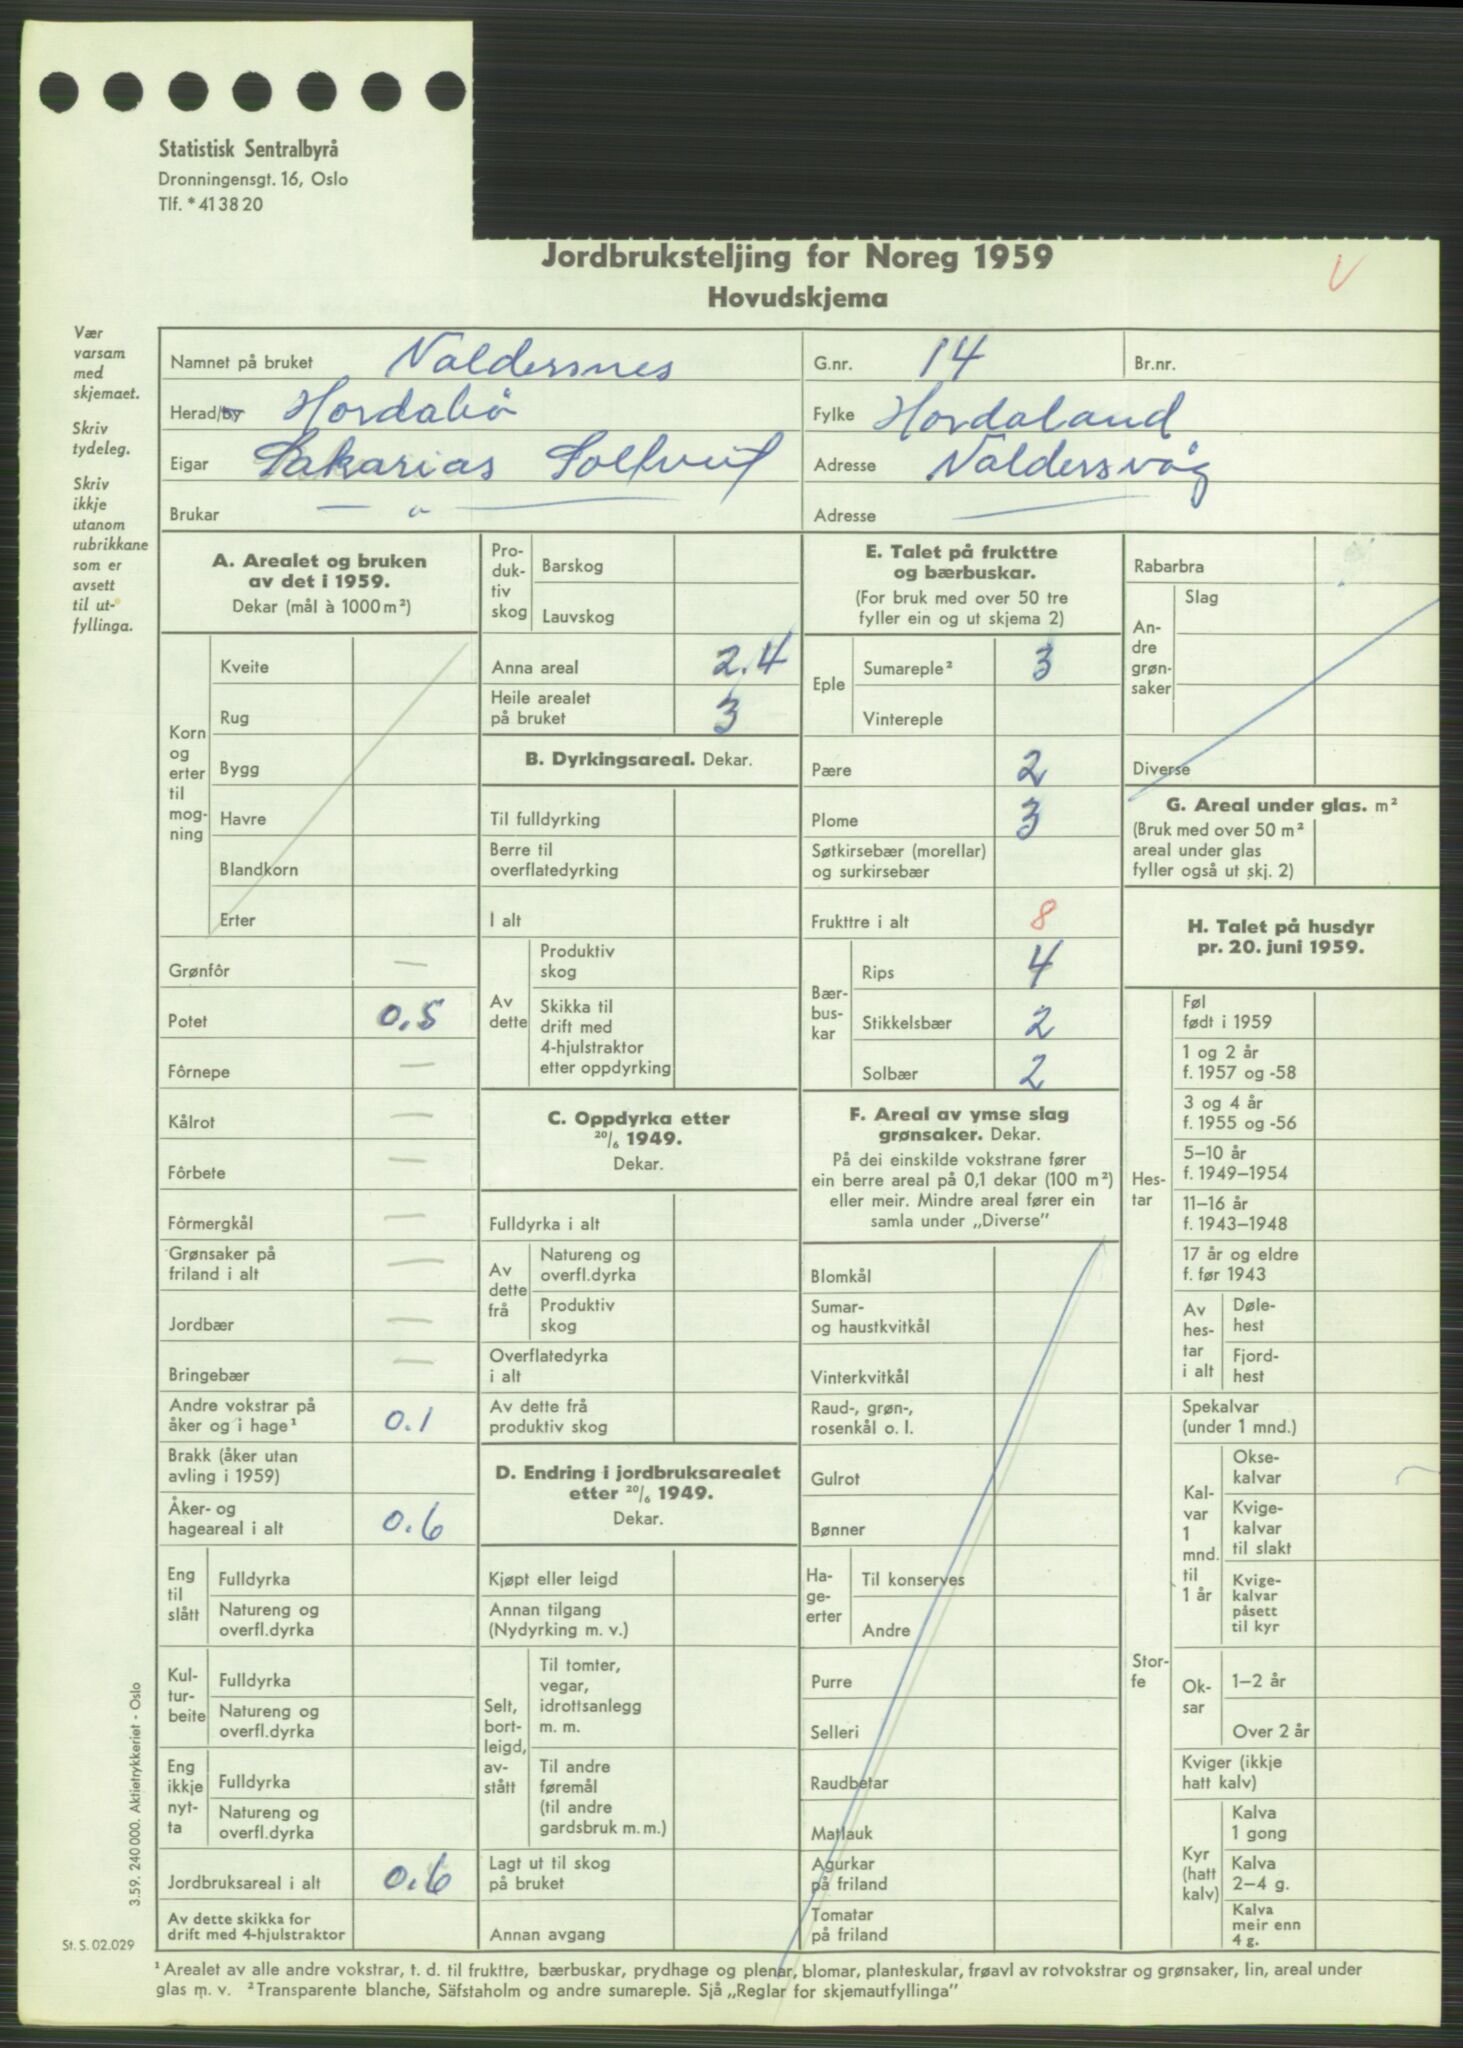 Statistisk Sentralbyrå
Dronningensgt. 16, Oslo
Tlf. * 41 38 20
Jordbruksteljing for Noreg 1959
V
Hovudskjema
Vær
varsam
med
skjemaet.
Skriv
tydeleg.
Skriv
ikkje
utanom
rubrikkane
som er
avsett
til ut-
fyllinga.
Namnet på bruket Valdersnes G.nr. 14 Br.nr.
Herad/by Hordabø Fylke Hordaland
Eigar Sakarias Soltveit Adresse Valdersvåg
Brukar — „ — Adresse —
A. Arealet og bruken
av det i 1959.
Dekar (mål à 1000 m²)
Korn
og
erter
til
mog-
ning
Kveite
Rug
Bygg
Havre
Blandkorn
Erter
Grønfôr —
Potet 0,5
Fôrnepe —
Kålrot —
Fôrbete —
Fôrmergkål —
Grønsaker på
friland i alt —
Jordbær —
Bringebær —
Andre vokstrar på
åker og i hage¹ 0.1
Brakk (åker utan
avling i 1959)
Åker- og
hageareal i alt 0.6
Eng
til
slått
Fulldyrka
Natureng og
overfl.dyrka
Kul-
tur-
beite
Fulldyrka
Natureng og
overfl.dyrka
Eng
ikkje
nyt-
ta
Fulldyrka
Natureng og
overfl.dyrka
Jordbruksareal i alt 0.6
Av dette skikka for
drift med 4-hjulstraktor
Pro-
duk-
tiv
skog
Barskog
Lauvskog
Anna areal 2.4
Heile arealet
på bruket 3
B. Dyrkingsareal. Dekar.
Til fulldyrking
Berre til
overflatedyrking
I alt
Av
dette
Produktiv
skog
Skikka til
drift med
4-hjulstraktor
etter oppdyrking
C. Oppdyrka etter
20/6 1949.
Dekar.
Fulldyrka i alt
Av
dette
frå
Natureng og
overfl.dyrka
Produktiv
skog
Overflatedyrka
i alt
Av dette frå
produktiv skog
D. Endring i jordbruksarealet
etter 20/6 1949.
Dekar.
Kjøpt eller leigd
Annan tilgang
(Nydyrking m. v.)
Selt,
bort-
leigd,
av-
stått
Til tomter,
vegar,
idrottsanlegg
m. m.
Til andre
føremål
(til andre
gardsbruk m. m.)
Lagt ut til skog
på bruket
Annan avgang
E. Talet på frukttre
og bærbuskar.
(For bruk med over 50 tre
fyller ein og ut skjema 2)
Eple
Sumareple² 3
Vintereple
Pære 2
Plome 3
Søtkirsebær (morellar)
og surkirsebær
Frukttre i alt 8
Bær-
bus-
kar
Rips 4
Stikkelsbær 2
Solbær 2
F. Areal av ymse slag
grønsaker. Dekar.
På dei einskilde vokstrane fører
ein berre areal på 0,1 dekar (100 m²)
eller meir. Mindre areal fører ein
samla under „Diverse”
Blomkål
Sumar-
og haustkvitkål
Vinterkvitkål
Raud-, grøn-,
rosenkål o. l.
Gulrot
Bønner
Ha-
ge-
erter
Til konserves
Andre
Purre
Selleri
Raudbetar
Matlauk
Agurkar
på friland
Tomatar
på friland
Rabarbra
An-
dre
grøn-
saker
Slag
Diverse
G. Areal under glas. m²
(Bruk med over 50 m²
areal under glas
fyller også ut skj. 2)
H. Talet på husdyr
pr. 20. juni 1959.
Hes-
tar
Føl
født i 1959
1 og 2 år
f. 1957 og -58
3 og 4 år
f. 1955 og -56
5–10 år
f. 1949–1954
11–16 år
f. 1943–1948
17 år og eldre
f. før 1943
Av
hes-
tar
i alt
Døle-
hest
Fjord-
hest
Stor-
fe
Spekalvar
(under 1 mnd.)
Kal-
var
1
mnd.
til
1 år
Okse-
kalvar
Kvige-
kalvar
til slakt
Kvige-
kalvar
påsett
til kyr
Ok-
sar
1–2 år
Over 2 år
Kviger (ikkje
hatt kalv)
Kyr
(hatt
kalv)
Kalva
1 gong
Kalva
2–4 g.
Kalva
meir enn
4 g.
3.59. 240 000. Aktietrykkeriet - Oslo
St. S. 02.029
¹ Arealet av alle andre vokstrar, t. d. til frukttre, bærbuskar, prydhage og plenar, blomar, planteskular, frøavl av rotvokstrar og grønsaker, lin, areal under
glas m. v. ² Transparente blanche, Säfstaholm og andre sumareple. Sjå „Reglar for skjemautfyllinga”